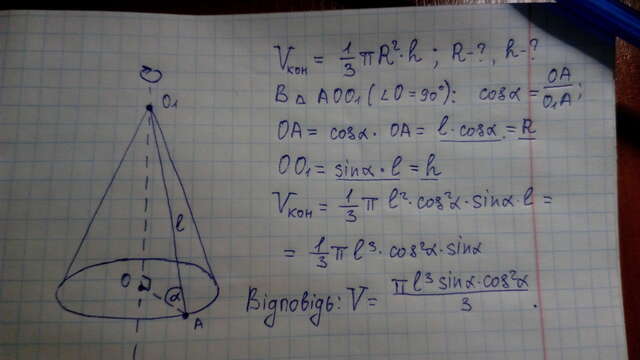 V кон = 1/3 πR²·h ; R-?, h-?
В △ AOO₁ (∠O=90°): cosα = OA/O₁A ;
OA = cosα · OA = l·cosα = R
OO₁ = sinα · l = h
V кон = 1/3 π l²·cos²α·sinα·l =
= 1/3 π l³·cos²α·sinα
Відповідь: V = πl³sinα·cos²α/3 .
O₁
l
O
α
A